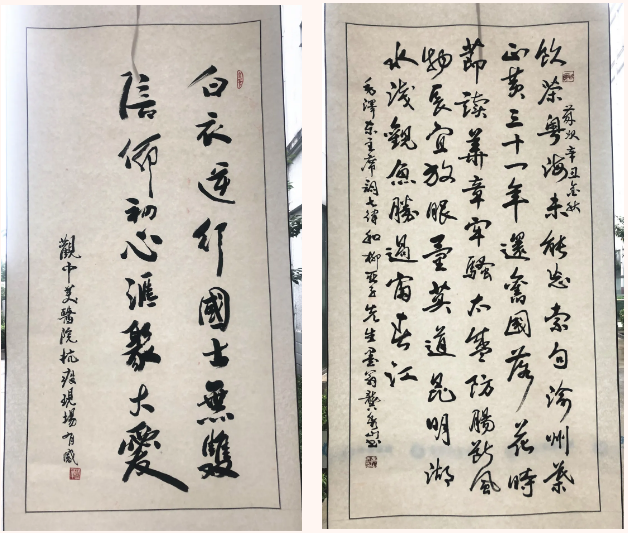 白衣逆行國士無雙
信仰初心滙聚大愛
觀中美醫院抗疫現場有感
歲次辛丑金秋
飲茶粵海未能忘索句渝州葉
正黃三十一年還舊國落花時
節讀華章牢騷太盛防腸斷風
物長宜放眼量莫道昆明湖
水淺觀魚勝過富春江
毛澤東主席詞七律和柳亞子先生墨翁龔